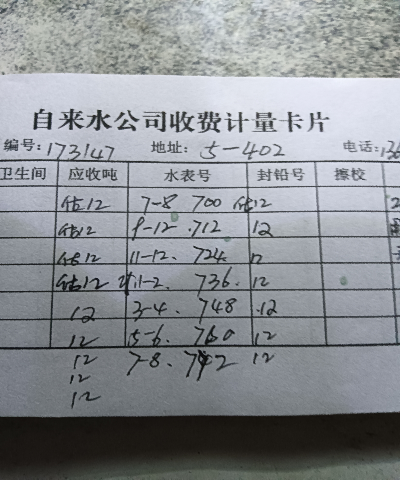 自来水公司收费计量卡片
编号: 173147 地址: 5-402 电话: 136
卫生间 应收吨 水表号 封铅号 擦校
估12 7-8 700 估12
估12 9-12 712 12
估12 11-12. 724 12
估12 11-2. 736. 12
12 3-4. 748 .12
12 5-6. 760 12
12 7-8. 742 12
12
12